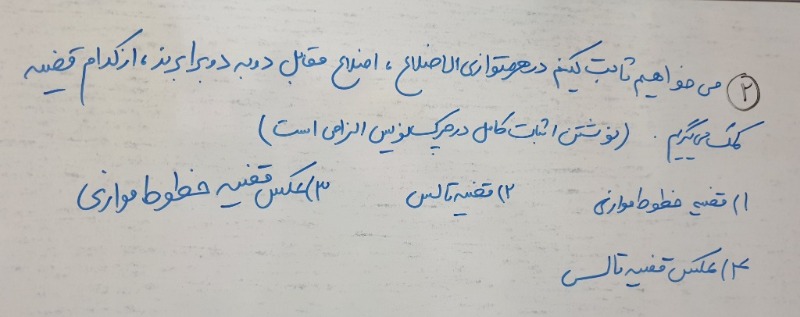 ۲ می خواهیم ثابت کنیم در هر متوازی الاضلاع ، اضلاع مقابل دوبه دو برابرند ، از کدام قضیه
کمک می گیریم . (نوشتن اثبات کامل در چرک نویس الزامی است)
۱) قضیه خطوط موازی ۲) قضیه تالس ۳) عکس قضیه خطوط موازی
۴) عکس قضیه تالس